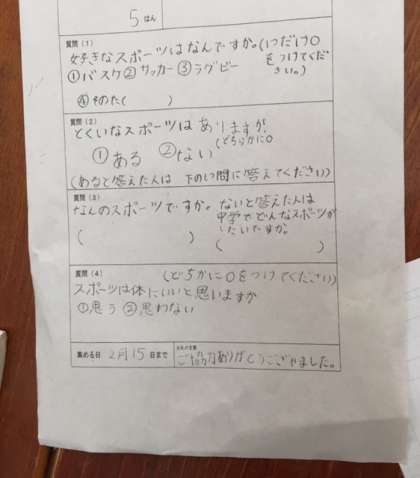 5はん
質問(1)
好きなスポーツはなんですか。(1つだけ○
をつけてくだ
さい。)
①バスケ②サッカー③ラグビー
④そのた(　　　)
質問(2)
とくいなスポーツはありますか。
(どちらかに○
①ある ②ない
(あると答えた人は 下のい問に答えてください)
質問(3)
なんのスポーツですか。ないと答えた人は
中学でどんなスポーツが
したいですか。
(　　　) (　　　)
質問(4) (どちらかに○をつけてください)
スポーツは体にいいと思いますか
①思う ②思わない
集める日 2月15日まで
ご協力ありがとうございました。